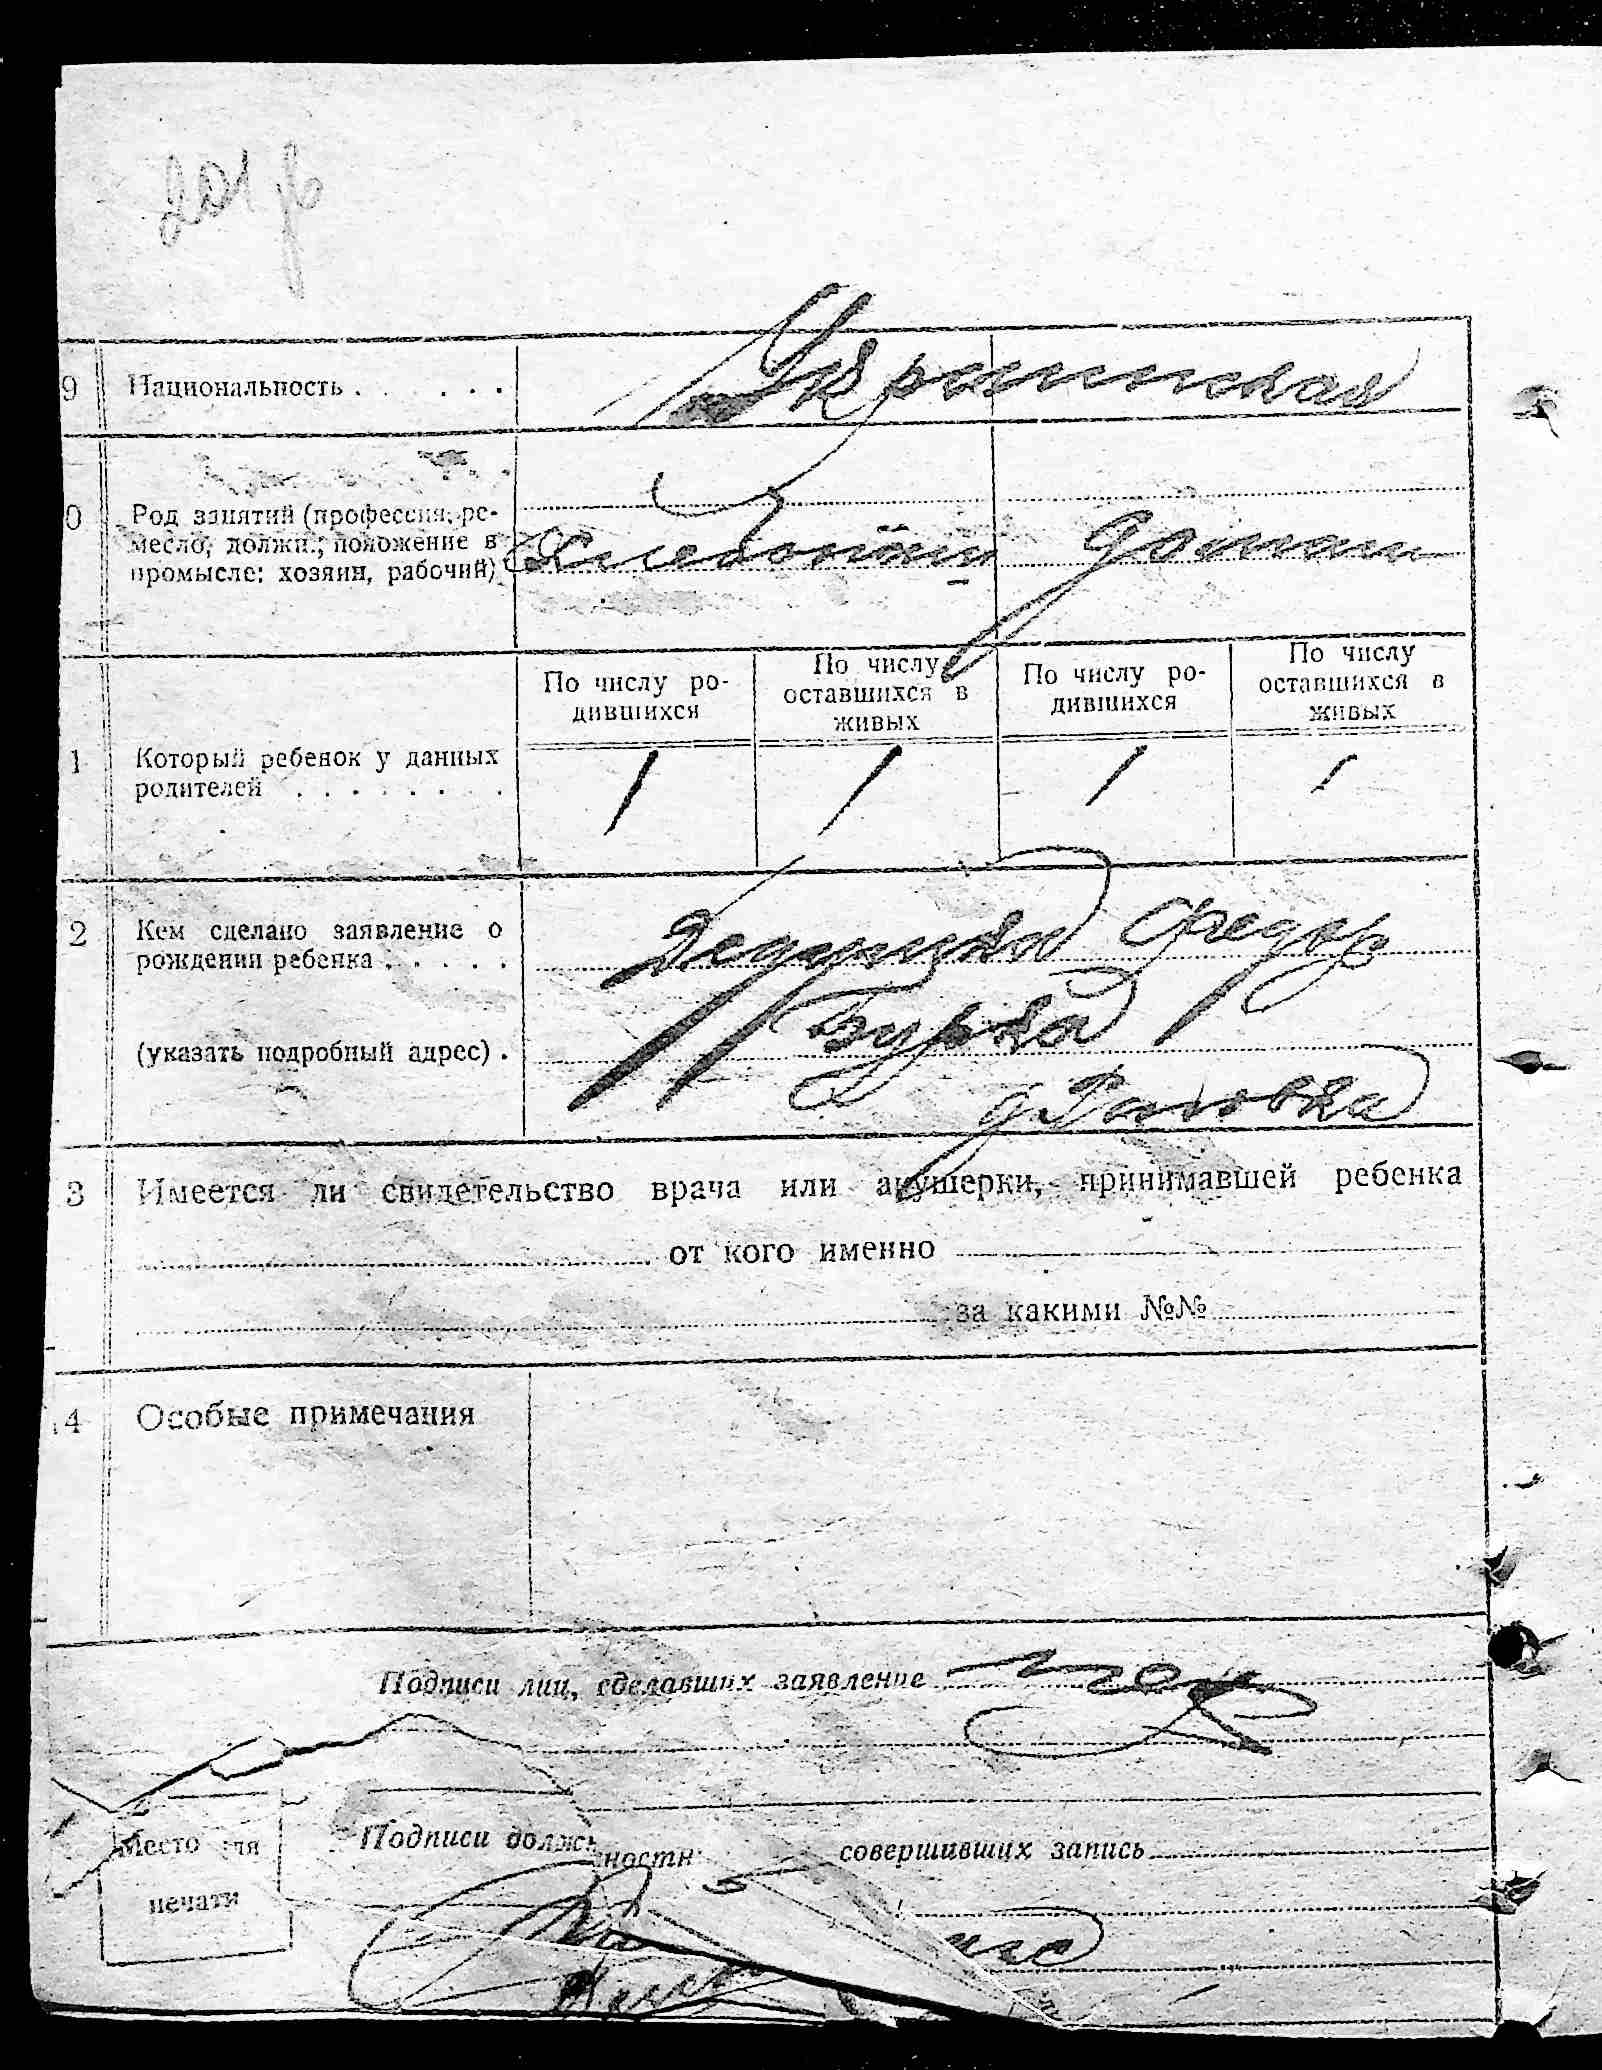 9 Национальность . . . . . Украинская
0 Род занятий (профессия, ре-
месло, должн., положение в
промысле: хозяин, рабочий)
домаш
По числу ро-
дившихся
По числу
оставшихся в
живых
По числу ро-
дившихся
По числу
оставшихся в
живых
1 Который ребенок у данных
родителей . . . . . . . .
1 1 1 1
2 Кем сделано заявление о
рождении ребенка . . . . .
Федор
Бурка
(указать подробный адрес) .
3 Имеется ли свидетельство врача или акушерки, принимавшей ребенка
от кого именно
за какими №№
4 Особые примечания
Подписи лиц, сделавших заявление
Место для
печати
Подписи должностн совершивших запись